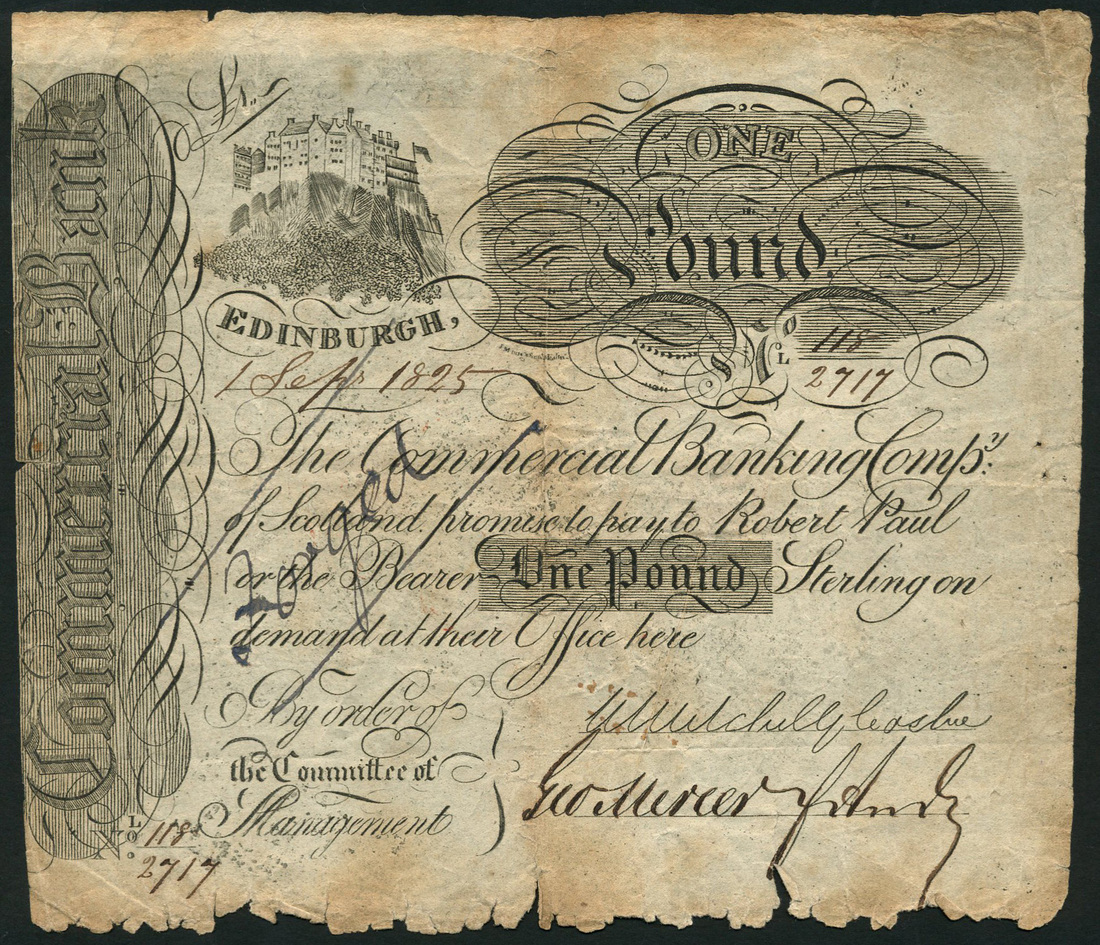 Commercial Bank
ONE
Pound.
EDINBURGH,
No 118
2717
1 Sept 1825
The Commercial Banking Compy.
of Scotland promise to pay to Robert Paul
or the Bearer One Pound Sterling on
demand at their Office here
Forged
By order of
the Committee of
Management
Geo Mercer
No. 118
2717